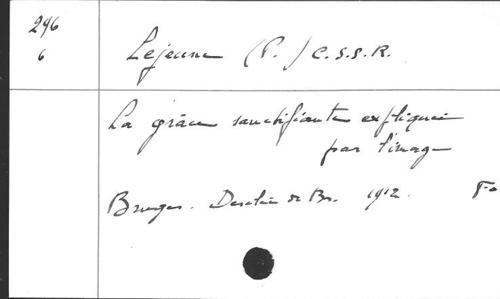 246
6
Lejeune (P.) C.S.S.R.
La grâce sanctifiante expliquée
par l'image
Bruges. Desclée de Br. 1912. 8-o